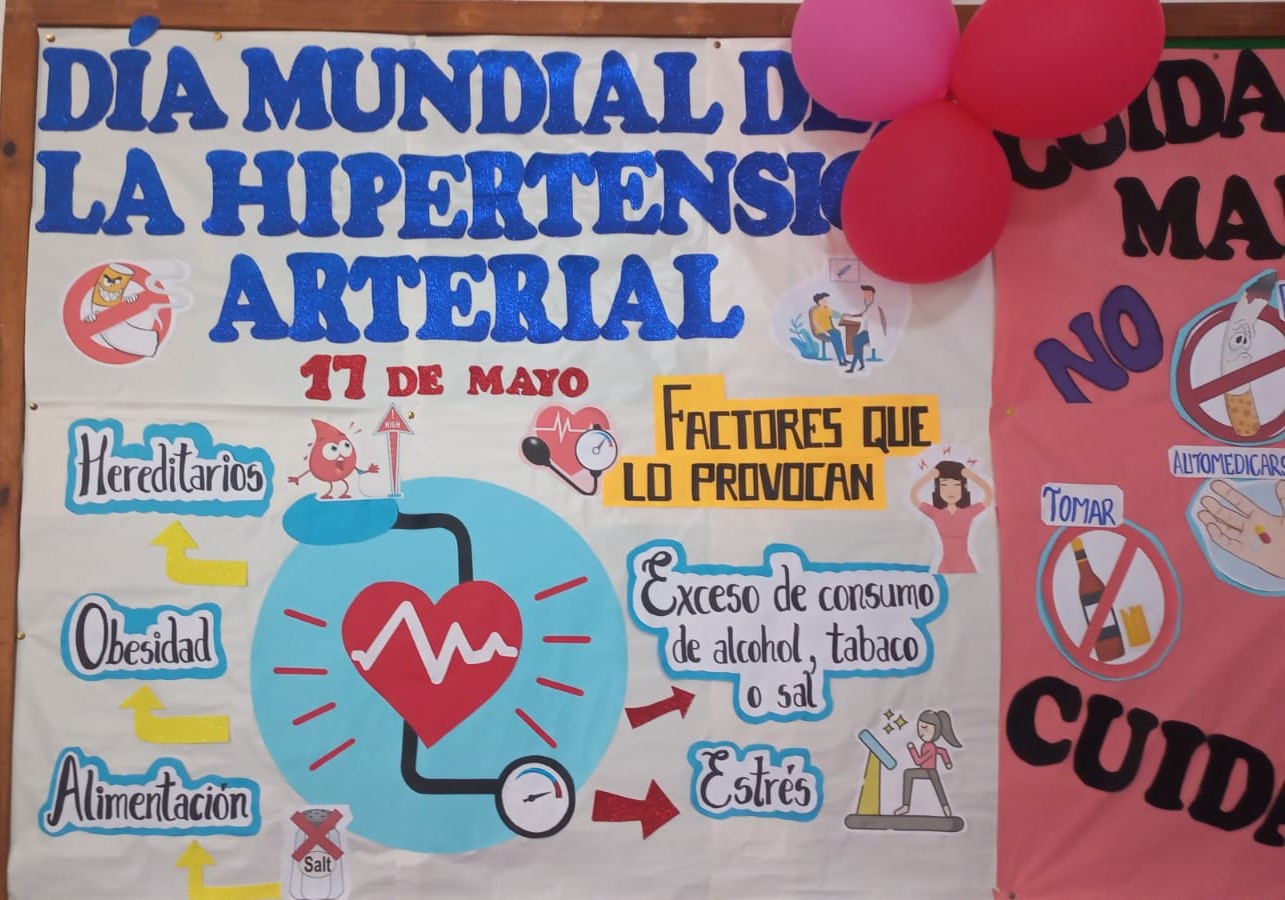 DÍA MUNDIAL DE
LA HIPERTENSIÓ
ARTERIAL
17 DE MAYO
HIGH
FACTORES QUE
LO PROVOCAN
Hereditarios
Obesidad
Alimentación
Salt
Exceso de consumo
de alcohol, tabaco
o sal
Estrés
CUIDA
MA
NO
AUTOMEDICARS
TOMAR
CUID